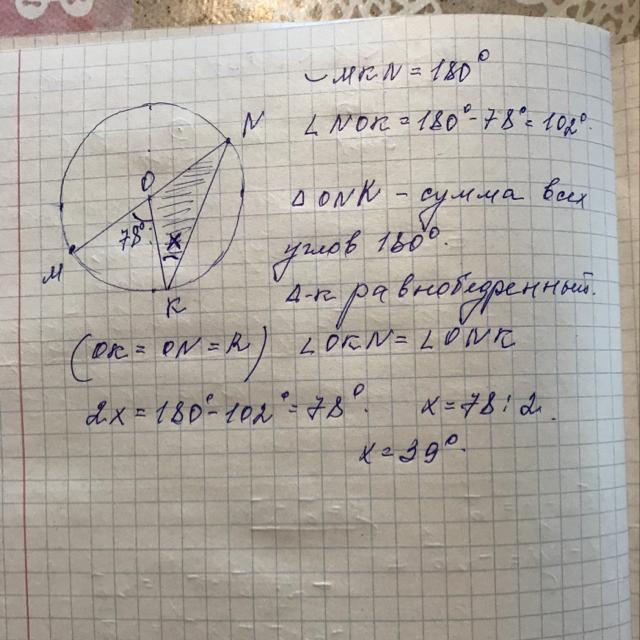 ◡ MKN = 180°
∠ NOK = 180° - 78° = 102°.
N
O
78°
x
M
K
Δ ONK - сумма всех
углов 180°.
Δ-к равнобедренный.
(OK = ON = R) ∠OKN = ∠ONK
2x = 180° - 102° = 78°. x = 78 : 2.
x = 39°.